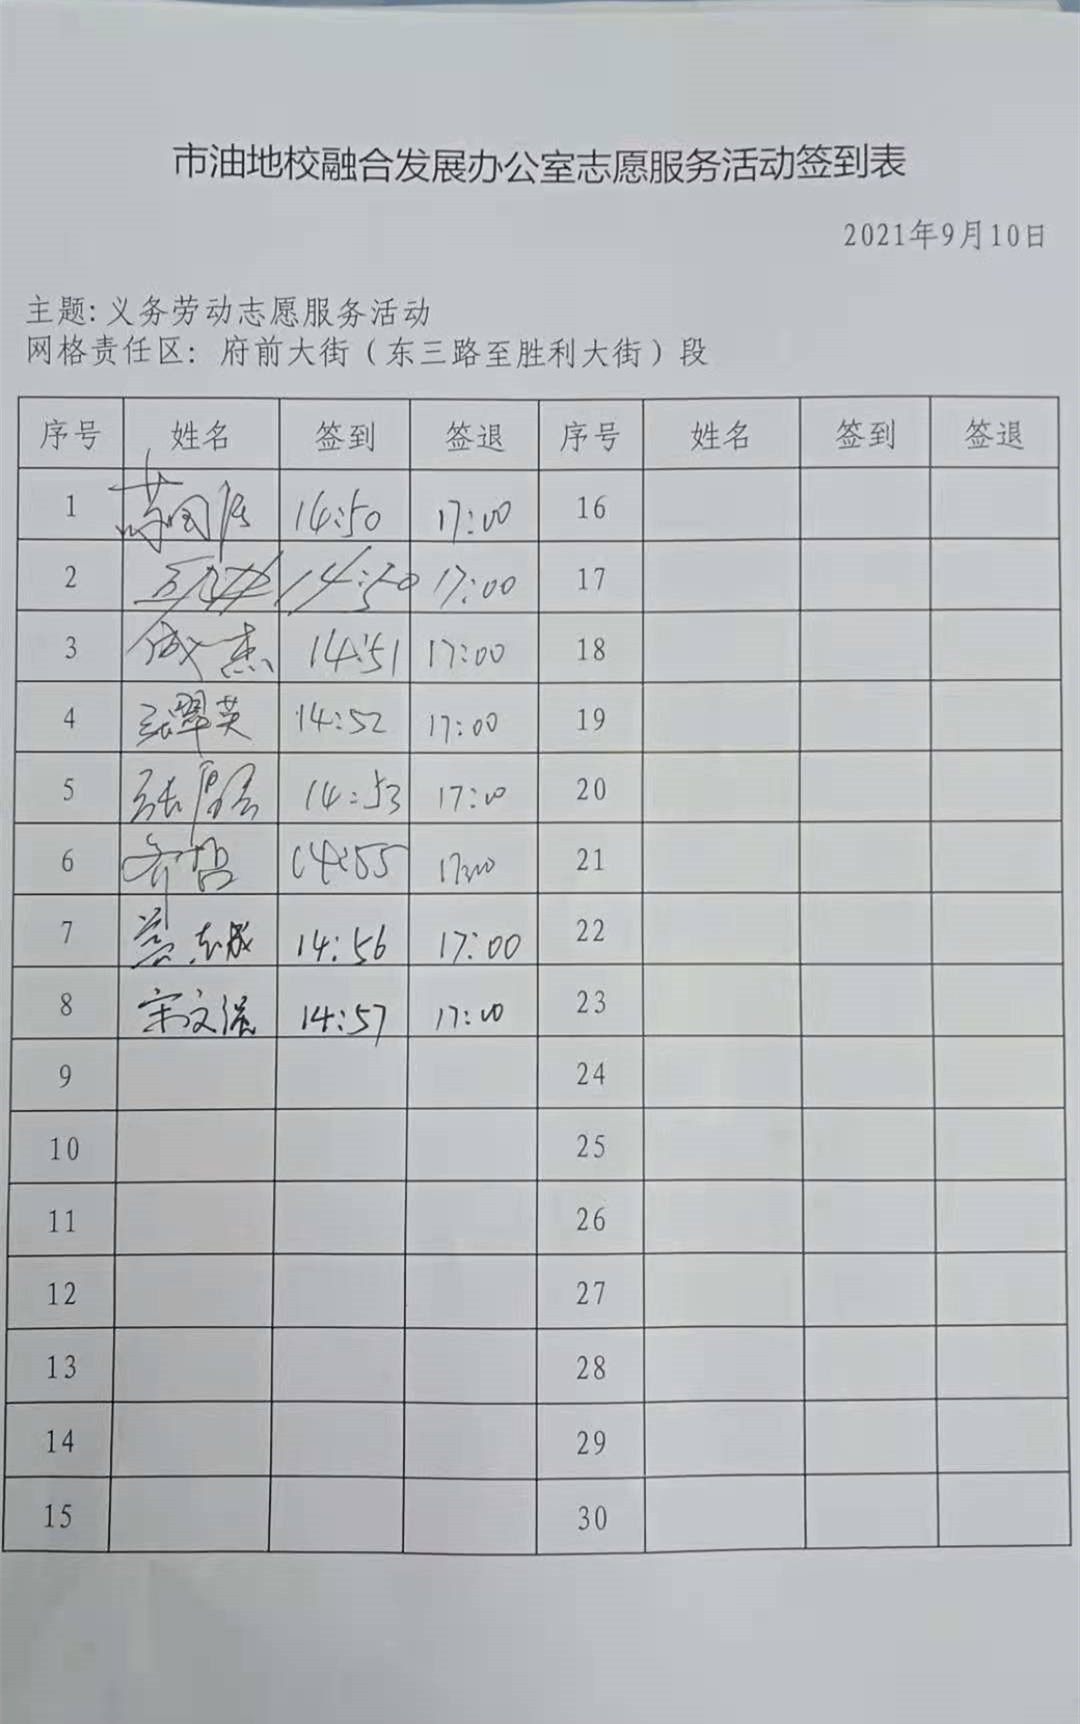 市油地校融合发展办公室志愿服务活动签到表
2021年9月10日
主题:义务劳动志愿服务活动
网格责任区: 府前大街（东三路至胜利大街）段
序号 姓名 签到 签退 序号 姓名 签到 签退
1 14:50 17:00 16
2 14:50 17:00 17
3 14:51 17:00 18
4 张翠英 14:52 17:00 19
5 张 14:53 17:00 20
6 齐哲 14:55 17:00 21
7 志成 14:56 17:00 22
8 宋文强 14:57 17:00 23
9 24
10 25
11 26
12 27
13 28
14 29
15 30